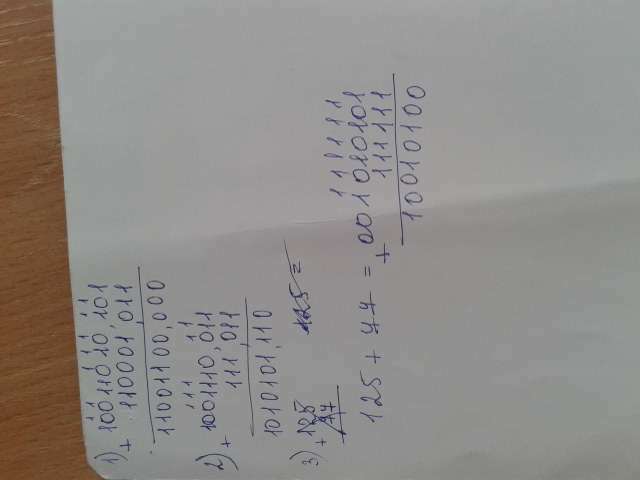 1 1 1 1 1 1
1) + 10011010,101
110001,011
11001100,000
1 1 1 1 1
2) + 1001110,011
111,011
1010101,110
3) + 125 125 =
77
1 1 1 1 1 1
125 + 77 = + 001010101
111111
10010100